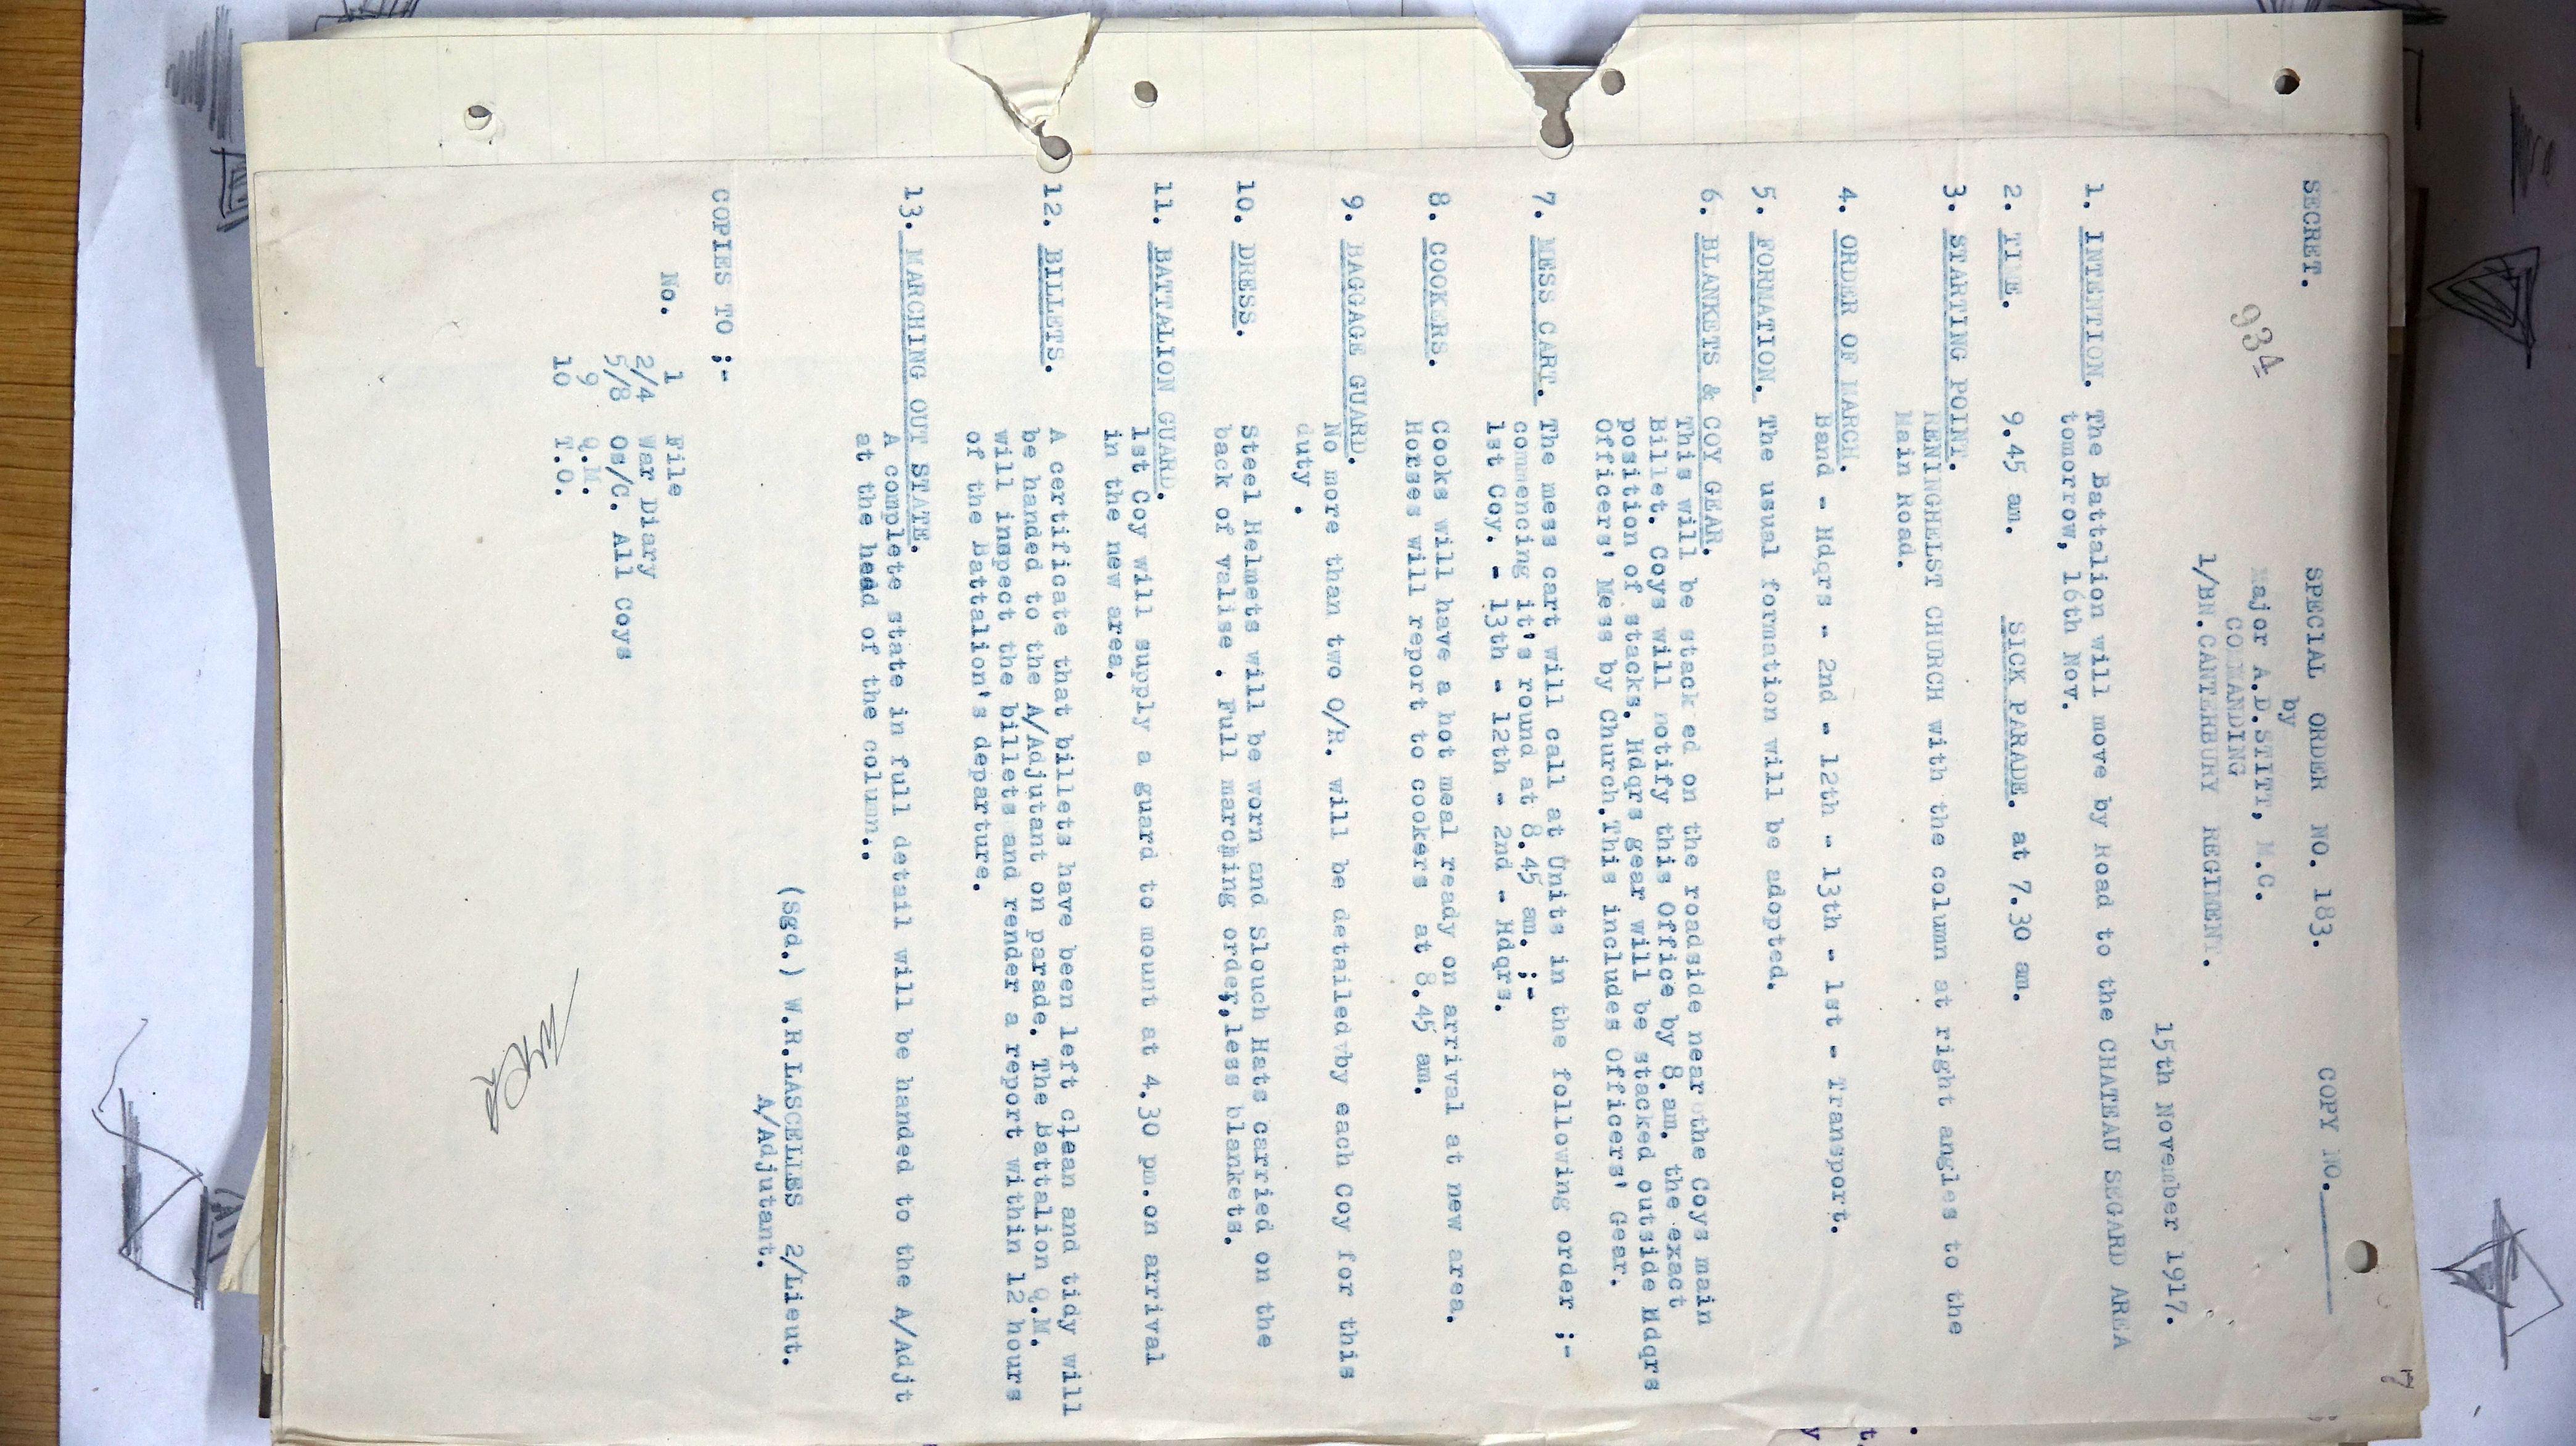 7
SECRET. SPECIAL ORDER NO. 183. COPY NO.
by
934 Major A.D.STITT, M.C.
COMMANDING
1/BN.CANTERBURY REGIMENT.
15th November 1917.
1. INTENTION. The Battalion will move by Road to the CHATEAU SEGARD AREA
tomorrow, 16th Nov.
2. TIME. 9.45 am. SICK PARADE. at 7.30 am.
3. STARTING POINT.
RENINGHELST CHURCH with the column at right angles to the
Main Road.
4. ORDER OF MARCH.
Band - Hdqrs - 2nd - 12th - 13th - 1st - Transport.
5. FORMATION. The usual formation will be adopted.
6. BLANKETS & COY GEAR.
This will be stack ed on the roadside near the Coys main
Billet. Coys will notify this Office by 8.am. the exact
position of stacks. Hdqrs gear will be stacked outside Hdqrs
Officers' Mess by Church.This includes Officers' Gear.
7. MESS CART. The mess cart will call at Units in the following order ;-
commencing it's round at 8.45 am. ;-
1st Coy. - 13th - 12th - 2nd - Hdqrs.
8. COOKERS. Cooks will have a hot meal ready on arrival at new area.
Horses will report to cookers at 8.45 am.
9. BAGGAGE GUARD.
No more than two O/R. will be detailed by each Coy for this
duty .
10. DRESS. Steel Helmets will be worn and Slouch Hats carried on the
back of valise . Full marching order,less blankets.
11. BATTALION GUARD.
1st Coy will supply a guard to mount at 4.30 pm.on arrival
in the new area.
12. BILLETS. A certificate that billets have been left clean and tidy will
be handed to the A/Adjutant on parade. The Battalion Q.M.
will inspect the billets and render a report within 12 hours
of the Battalion's departure.
13. MARCHING OUT STATE.
A complete state in full detail will be handed to the A/Adjt
at the head of the column..
(Sgd.) W.R.LASCELLES 2/Lieut.
A/Adjutant.
COPIES TO ;-
No. 1 File
2/4 War Diary
5/8 Os/C. All Coys
9 Q.M.
10 T.O.